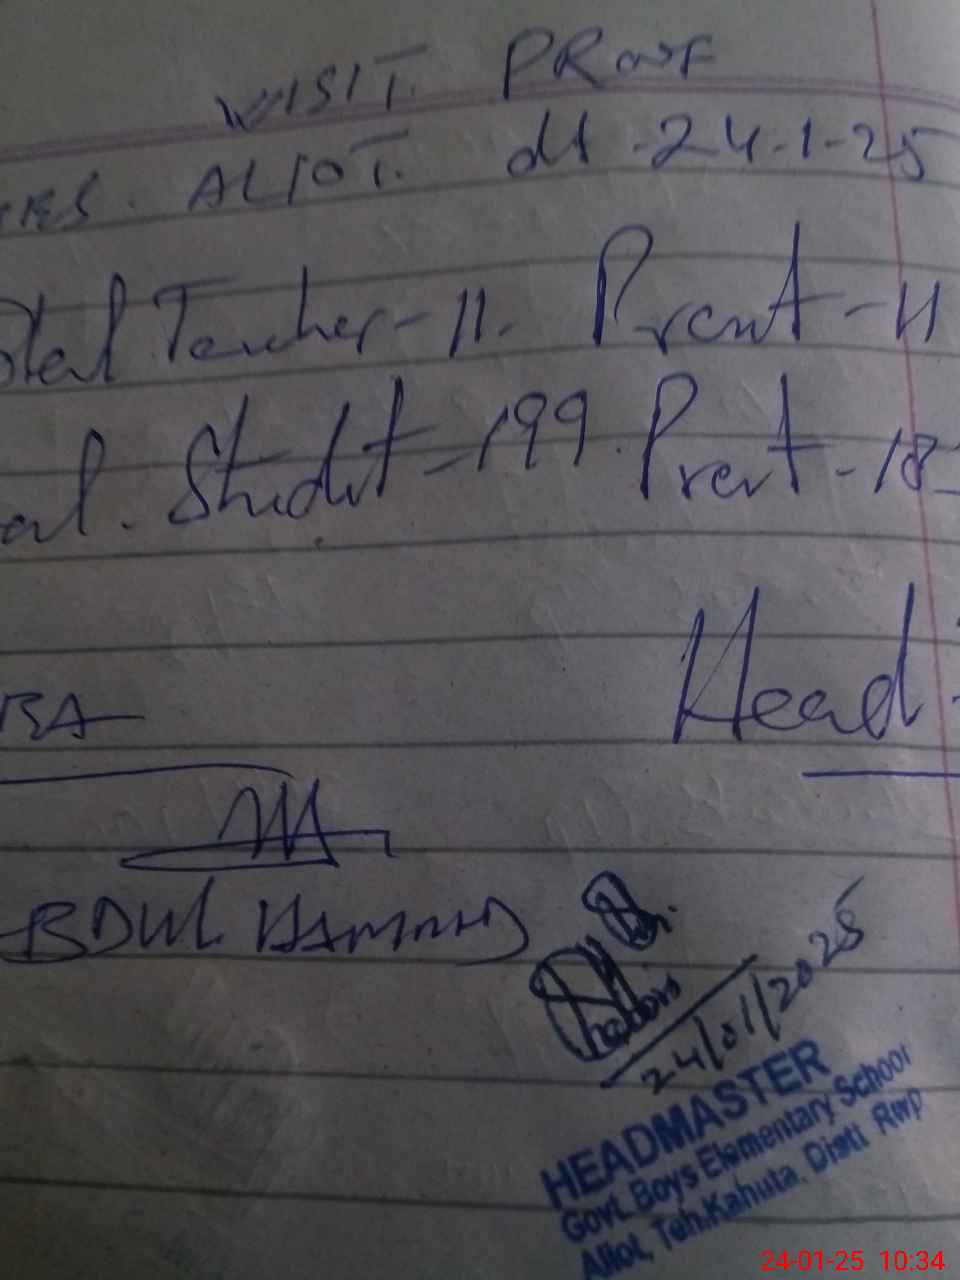 VISIT. PRooF
ALIOT. dt -24-1-25
Total Teacher-11. Present-11
Student-199. Present-18
Head
BDUL HAMMAD
24/01/2025
HEADMASTER
Govt. Boys Elementary School
Aliot, Teh.Kahuta. Distt Rwp
24-01-25 10:34